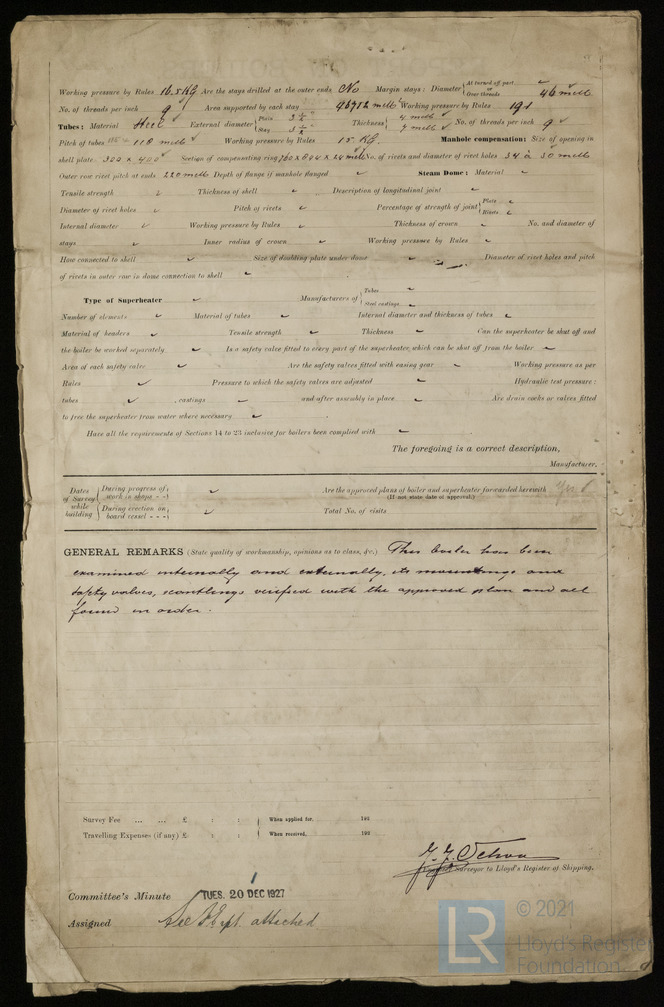 Working pressure by Rules 16.5 KG Are the stays drilled at the outer ends No Margin stays: Diameter { At turned off part or Over threads 46 mm
No. of threads per inch 9 Area supported by each stay Working pressure by Rules 191
Tubes: Material Steel External diameter { Plain 3 ½" Stay 3 ½" Thickness { 4 7 No. of threads per inch 9
Pitch of tubes 118 Working pressure by Rules 15 KG. Manhole compensation: Size of opening in
shell plate 300 x 400 Section of compensating ring No. of rivets and diameter of rivet holes 34 à 30
Outer row rivet pitch at ends 220 Depth of flange if manhole flanged Steam Dome: Material
Tensile strength Thickness of shell Description of longitudinal joint
Diameter of rivet holes Pitch of rivets Percentage of strength of joint { Plate Rivets
Internal diameter Working pressure by Rules Thickness of crown No. and diameter of
stays Inner radius of crown Working pressure by Rules
How connected to shell Size of doubling plate under dome Diameter of rivet holes and pitch
of rivets in outer row in dome connection to shell
Type of Superheater Manufacturers of { Tubes Steel castings
Number of elements Material of tubes Internal diameter and thickness of tubes
Material of headers Tensile strength Thickness Can the superheater be shut off and
the boiler be worked separately Is a safety valve fitted to every part of the superheater which can be shut off from the boiler
Area of each safety valve Are the safety valves fitted with easing gear Working pressure as per
Rules Pressure to which the safety valves are adjusted Hydraulic test pressure:
tubes , castings and after assembly in place Are drain cocks or valves fitted
to free the superheater from water where necessary
Have all the requirements of Sections 14 to 23 inclusive for boilers been complied with
The foregoing is a correct description,
Manufacturer.
Dates of Survey while building { During progress of work in shops - - Are the approved plans of boiler and superheater forwarded herewith Yes
(If not state date of approval.)
During erection on board vessel - - - Total No. of visits
GENERAL REMARKS (State quality of workmanship, opinions as to class, &c.) This boiler has been
examined internally and externally, its mountings and
safety valves, scantlings verified with the approved plan and all
found in order.
Survey Fee ... ... £ : : When applied for, 192
Travelling Expenses (if any) £ : : When received, 192
Surveyor to Lloyd's Register of Shipping.
Committee's Minute TUES. 20 DEC 1927
Assigned See attached
LR © 2021
Lloyd's Register
Foundation